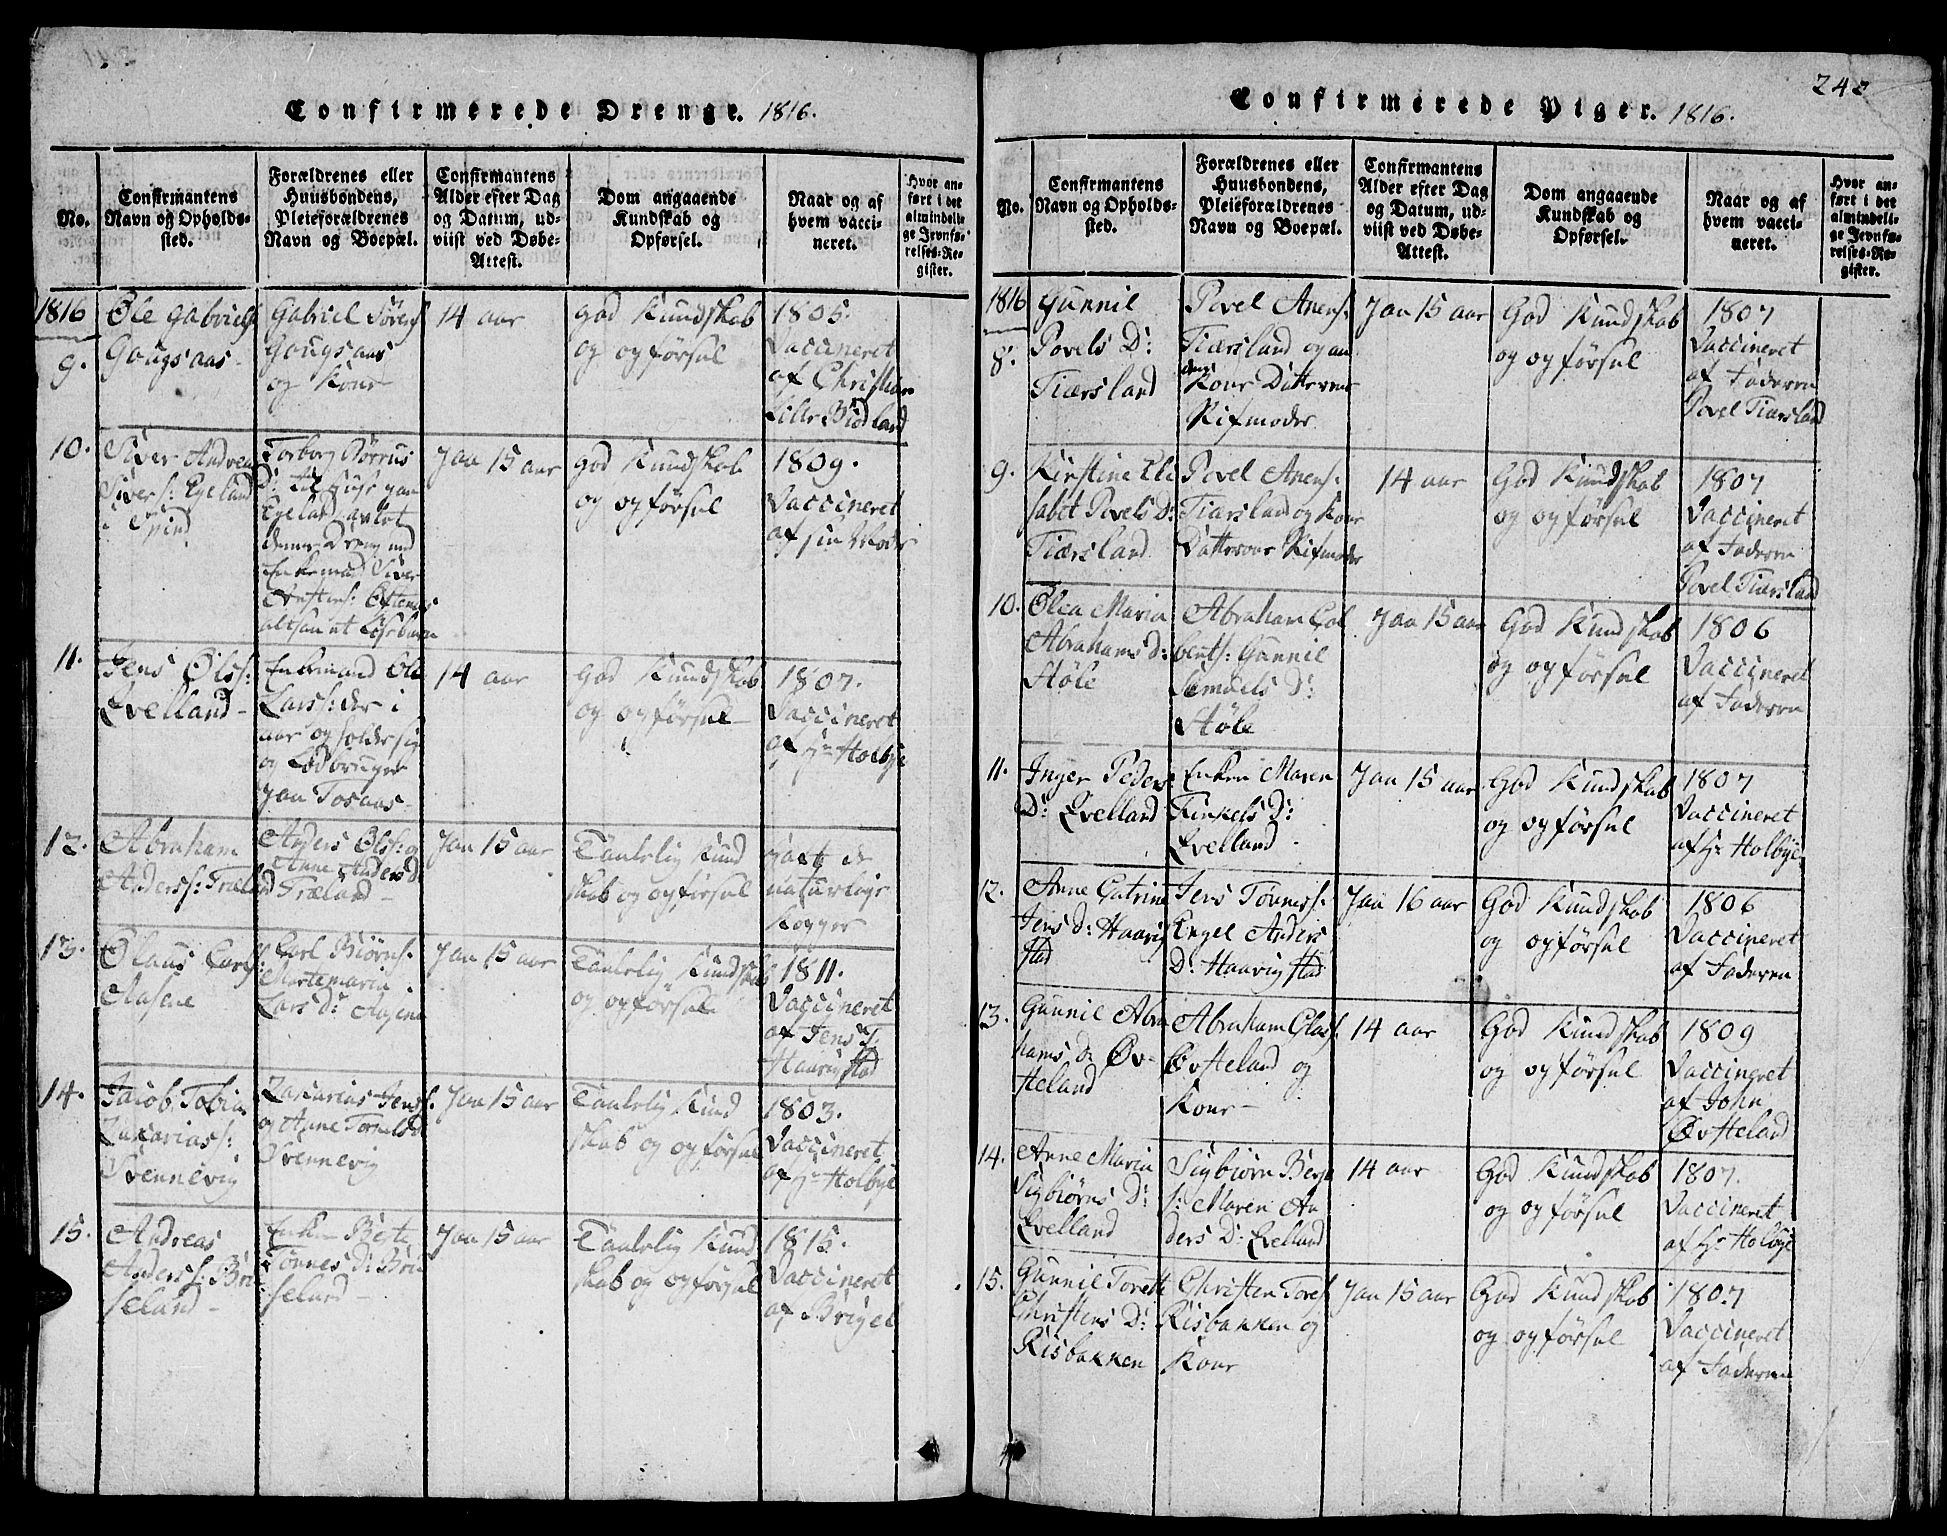 Confirmerede Drenge. 1816.
No.
Confirmantens
Navn og Opholds-
sted.
Forældrenes eller
Huusbondens,
Pleieforældrenes
Navn og Boepæl.
Confirmantens
Alder efter Dag
og Datum, ud-
viist ved Døbe-
Attest.
Dom angaaende
Kundskab og
Opførsel.
Naar og af
hvem vacci-
neret.
Hvor an-
ført i det
almindeli-
ge Jevnfø-
relses-Re-
gister.
1816
9.
Ole Gabriels
Gougsaas
Gabriel Sørens
Gougsaas
og Kone
14 aar
god Kundskab
og opførsel
1805.
Vaccineret
af Christian
Lille Biðland
10.
Siver Andreas
Sivers: Egeland
i Spind
Torborg Børrus
D:
Egeland avlet
denne Dreng med
Enkemand Siver
altsaa et
Jaa 15 aar
god Kundskab
og opførsel
1809.
Vaccineret
af sin Moder
11.
Jens Ols:
Qvelland
Enkemand Ole
Lars: der i
aar
og
paa Tosaas
14 aar
god Kundskab
og opførsel
1807.
Vaccineret
af Hr Holbye
12.
Abraham
Anders: Træland
Anders Ols: og
Anne Anders D
Træland
Jaa 15 aar
Taalelig Kund
skab og opførsel
havt de
naturlige
Kopper
13.
Olaus Carls:
Aasene
Carl Biørns:
Martemaria
Lars D: Aasene
Jaa 15 aar
Taalelig Kundskab
og opførsel
1811.
Vaccineret
af Jens T.
Haavigstad
14.
Jacob Tobias
Zacarias:
Svennevig
Zacarias Jens:
og Anne Tomelsd
Svennevig
Jaa 15 aar
Taalelig Kund
skab og opførsel
1803.
Vaccineret
af Hr Holbye
15.
Andreas
Anders: Brü
seland
Enken Berte
Tønnes D: Brü
seland
Jaa 15 aar
Taalelig Kund
skab og opførsel
1815.
Vaccineret
af Brigel
242
Confirmerede Piger. 1816.
No.
Confirmantens
Navn og Opholds-
sted.
Forældrenes eller
Huusbondens,
Pleieforældrenes
Navn og Boepæl.
Confirmantens
Alder efter Dag
og Datum, ud-
viist ved Døbe-
Attest.
Dom angaaende
Kundskab og
Opførsel.
Naar og af
hvem vacci-
neret.
Hvor an-
ført i det
almindeli-
ge Jevnfø-
relses-Re-
gister.
1816
8.
Gunnil
Povels D:
Tiærsland
Povel Anens:
Tiærsland og an
den
Kone Datterens
Stifmoder
Jaa 15 aar
God Kundskab
og opførsel
1807
Vaccineret
af Faderen
Povel Tiærsland
9.
Kirstine Eli
sabet Povels D:
Tiærsland
Povel Anens:
Tiærsland og Kone
Datterens Stifmoder
14 aar
God Kundskab
og opførsel
1807
Vaccineret
af Faderen
Povel Tiærsland
10.
Olea Maria
Abrahams D:
Støle
Abraham Col
bents: Gunnil
Samuels D:
Støle
Jaa 15 aar
God Kundskab
og opførsel
1806
Vaccineret
af Faderen
11.
Inger Peders
D: Qvelland
Enken Maren
Tinkels D:
Qvelland
Jaa 15 aar
God Kundskab
og opførsel
1807
Vaccineret
af Hr Holbye
12.
Anne Catrine
Jens D: Haavig
stad
Jens Tønnes:
Engel Anders
D: Haavigstad
Jaa 16 aar
God Kundskab
og opførsel
1806
Vaccineret
af Faderen
13.
Gunnil Abra
hams D: Øv-
steland
Abraham Olas:
Øvsteland og
Kone
14 aar
God Kundskab
og opførsel
1809
Vaccineret
af John
Øvsteland
14.
Anne Maria
Sigbiørns D:
Qvelland
Sigbiørn Berge
s: Maren An
ders D: Qvelland
14 aar
God Kundskab
og opførsel
1807.
Vaccineret
af Hr Holbye
15.
Gunnil Torette
Christens D:
Risbakken
Christen Tores:
Risbakken og
Kone
Jaa 15 aar
God Kundskab
og opførsel
1807
Vaccineret
af Faderen